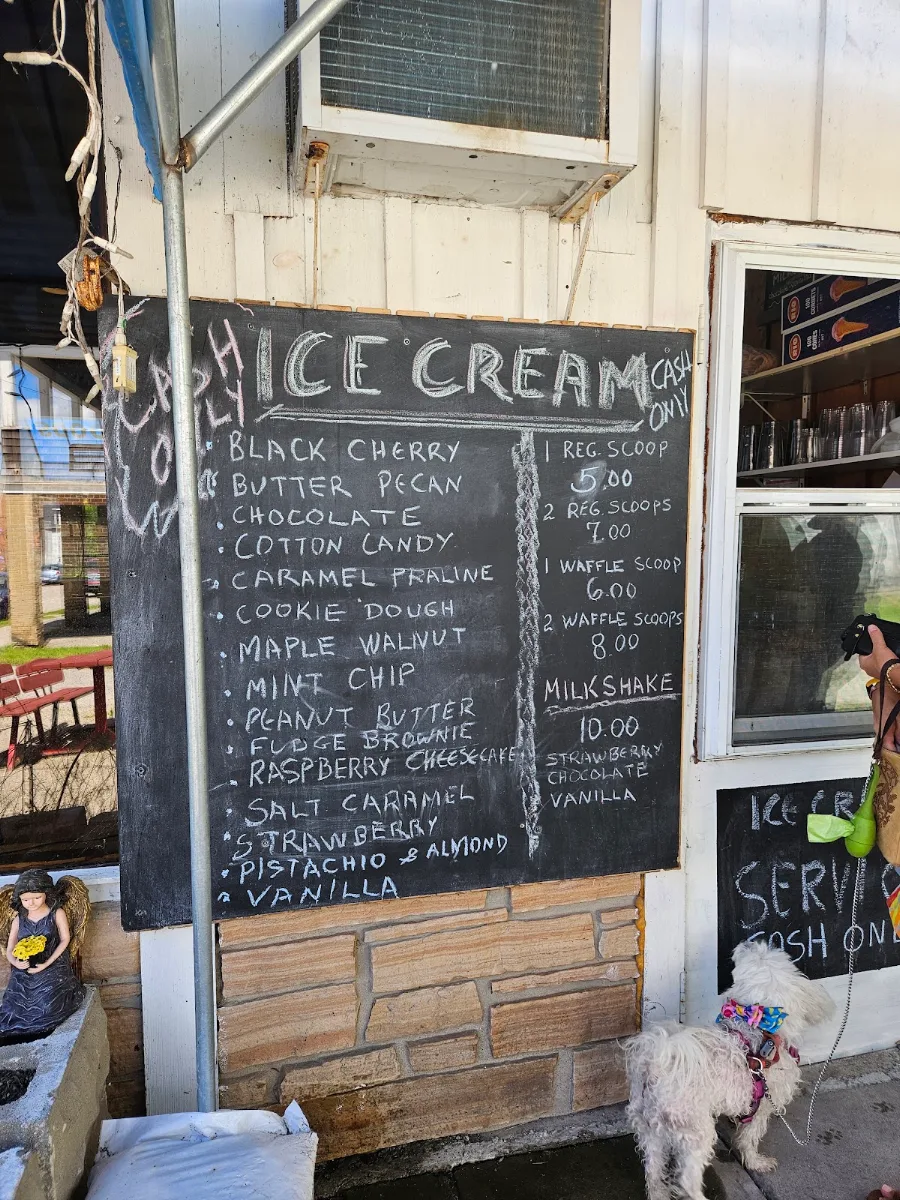 CASH
ONLY
ICE CREAM
CASH
ONLY
• BLACK CHERRY
• BUTTER PECAN
• CHOCOLATE
• COTTON CANDY
• CARAMEL PRALINE
• COOKIE DOUGH
• MAPLE WALNUT
• MINT CHIP
• PEANUT BUTTER
• FUDGE BROWNIE
• RASPBERRY CHEESECAKE
• SALT CARAMEL
• STRAWBERRY
• PISTACHIO & ALMOND
• VANILLA
1 REG. SCOOP
5.00
2 REG. SCOOPS
7.00
1 WAFFLE SCOOP
6.00
2 WAFFLE SCOOPS
8.00
MILKSHAKE
10.00
STRAWBERRY
CHOCOLATE
VANILLA
ICE CR
SERV